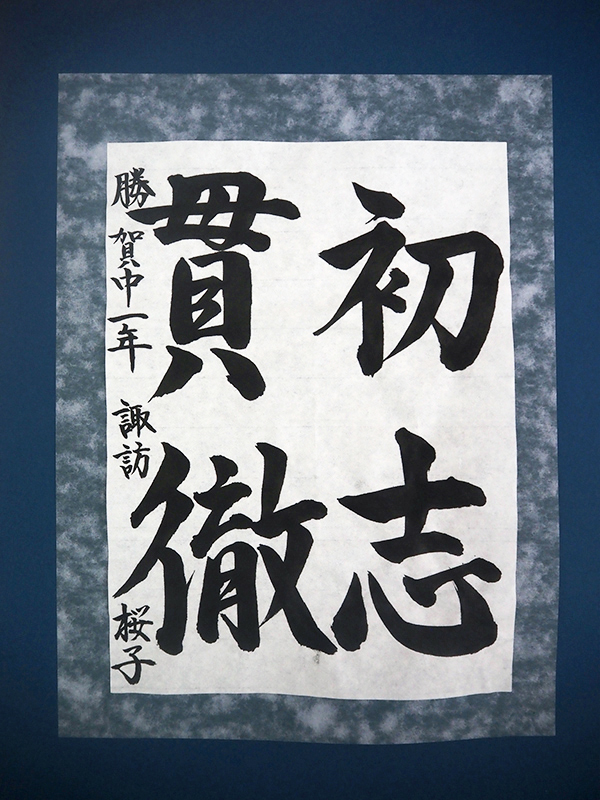 初志
貫徹
勝賀中一年 諏訪 桜子